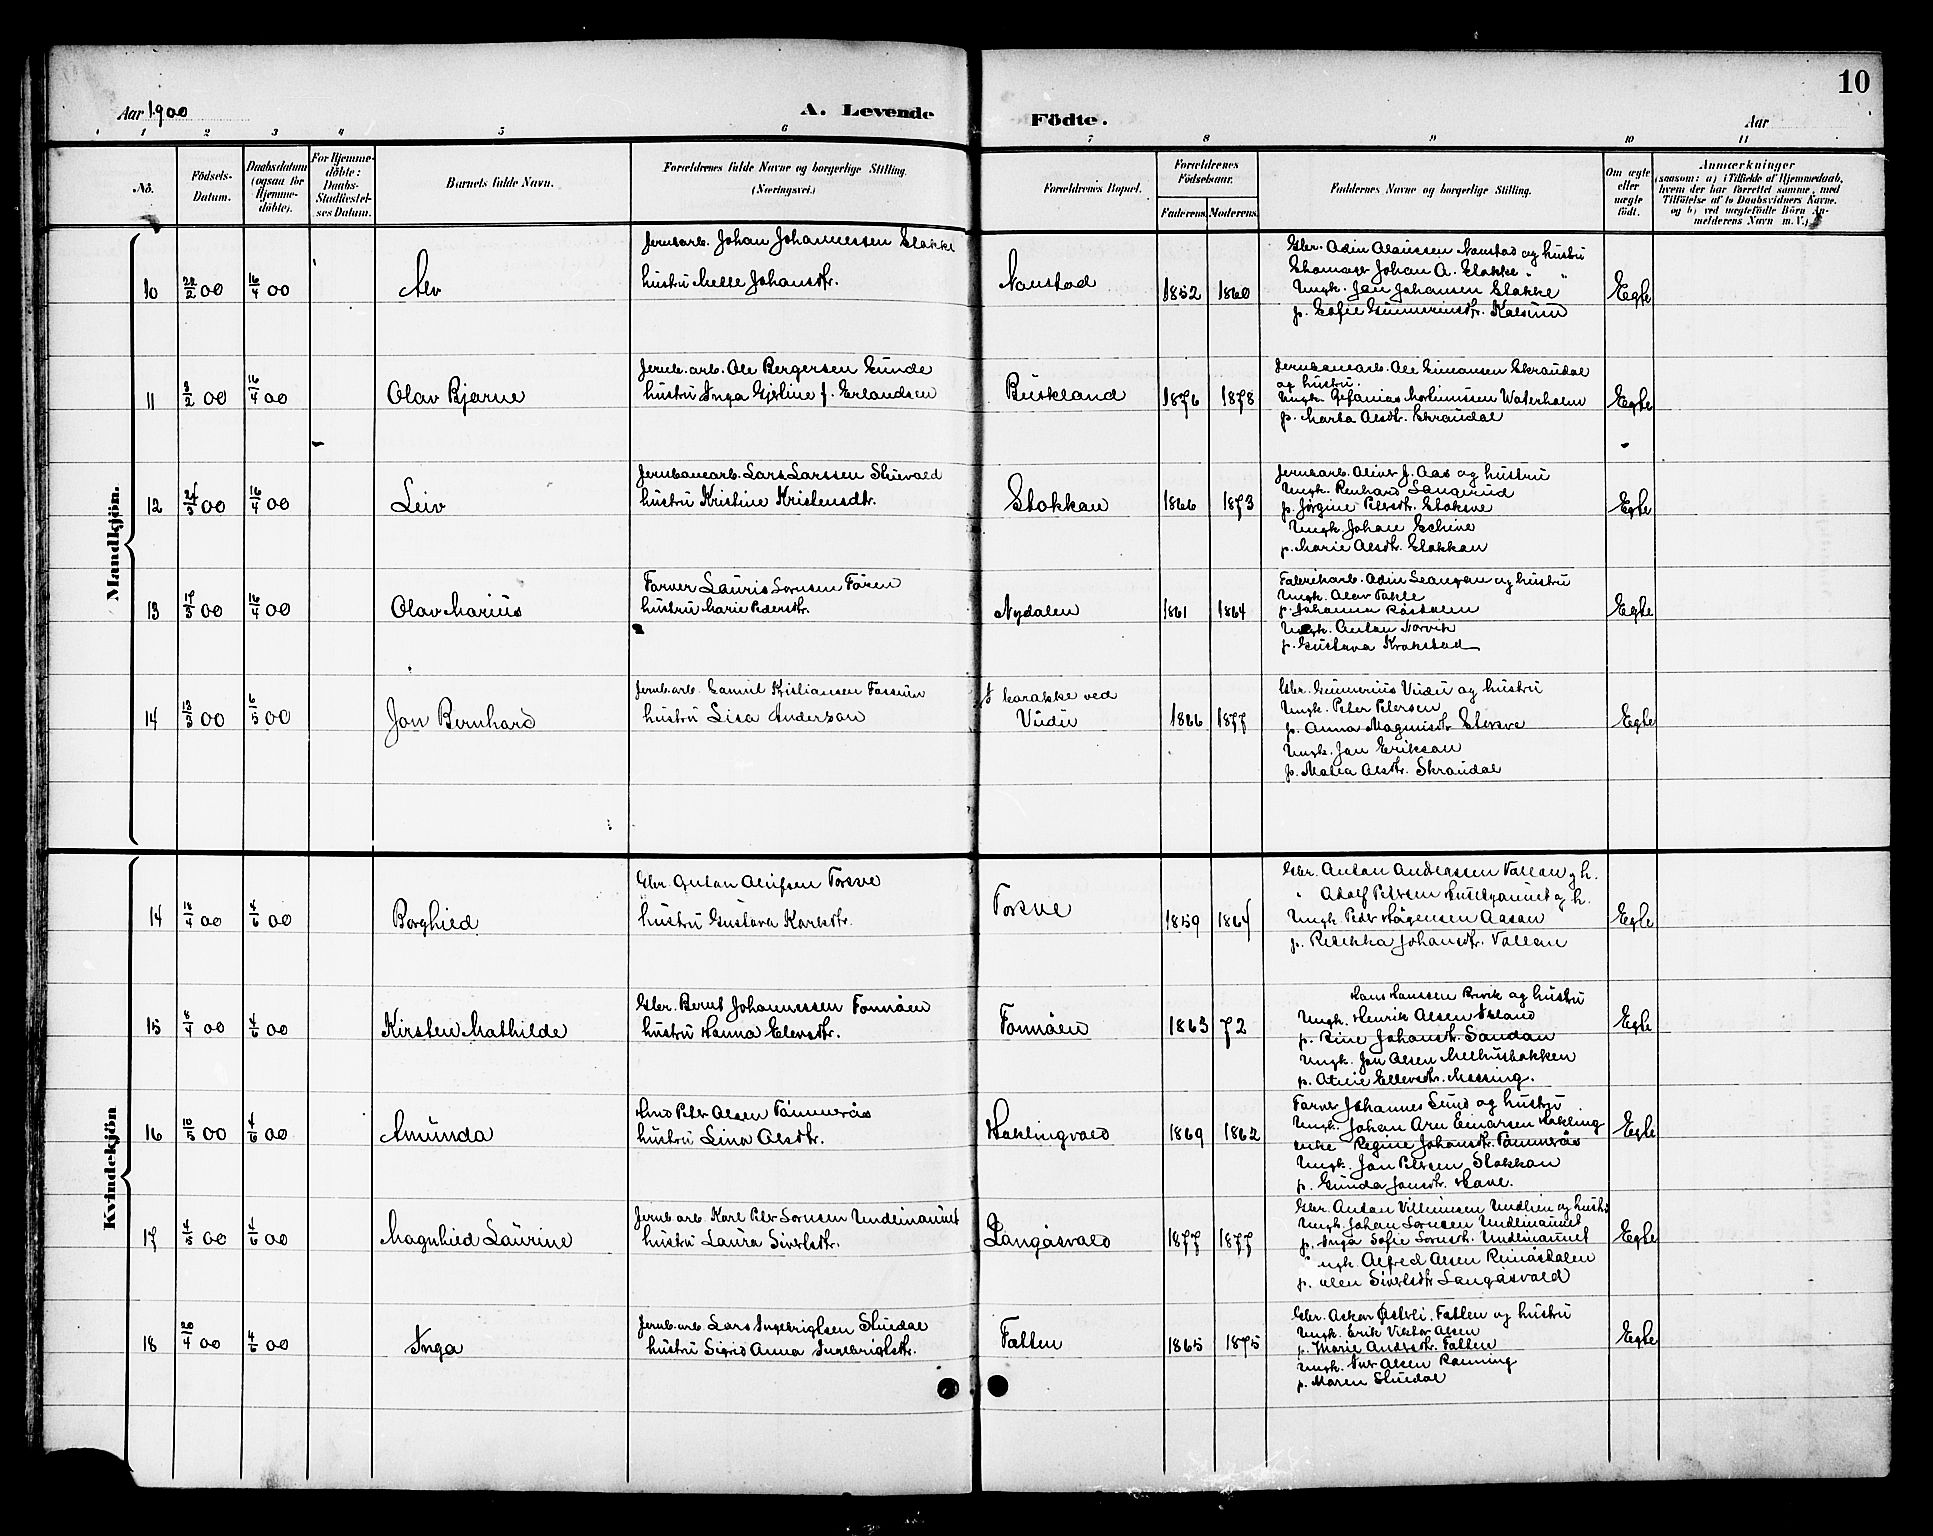 10
Aar 1900
A. Levende
Födte.
Aar
1 2 3 4 5 6 7 8 9 10 11
No.
Födsels-
Datum.
Daabsdatum
(ogsaa for
Hjemme-
döbte).
For Hjemme-
döbte:
Daabs-
Stadfæstel-
ses Datum.
Barnets fulde Navn.
Forældrenes fulde Navne og borgerlige Stilling.
(Næringsvei.)
Forældrenes Bopæl.
Forældrenes
Födselsaar.
Faderens. Moderens.
Faddernes Navne og borgerlige Stilling.
Om ægte
eller
uægte
födt.
Anmærkninger
(saasom: a) i Tilfælde af Hjemmedaab,
hvem der har forrettet samme, med
Tilföielse af to Daabsvidners Navne,
og b) ved uægtefödte Börn An-
melderens Navn m.V.)
Mandkjön.
10 28/2 00 16/4 00
Jernbarb. Johan Johannessen Stokke
hustru Melle Johansdtr.
Naustad
1852 1860
Gbr. Odin Olaussen Naustad og hustru
Johan A. Stokke " "
Ungk. Jon Johansen Stokke
p. Sofie Gunneriusdtr. Kalsund
Egte
11 2/2 00 16/4 00
Olav Bjarne
Jernb.arb. Ole Bergersen Sunde
hustru Inga Gjeline f. Erlandsen
Buskland
1876 1878
Jernbanearb. Ole Simonsen Skraudal
og hustru.
Ungk. Zefanias Martinussen Waterholm
p. Marta Olsdtr. Skraudal
Egte
12 24/3 00 16/4 00
Leiv
Jernbanearb. Lars Larssen Stuevold
hustru Kristine Kristensdtr.
Stokkan
1866 1873
Jernbarb. Oliver J. Aas og hustru
Ungk. Renhard Langerud
p. Jørgine Petersdtr. Stokke
Ungk. Johan Schive
p. Marie Olsdtr. Stokkan
Egte
13 17/3 00 16/4 00
Olav Marius
Farver Lauris Sørensen Føren
hustru Marie Pedersdtr.
Nydalen
1861 1864
Fabrikarb. Odin Leangen og hustru
Ungk. Olav Fahle
p. Johanna Røstølen
Ungk. Anton Norvik
p. Gustava Krokstad
Egte
14 15/3 00 6/5 00
Jon Bernhard
Jernb.arb. Samuel Kristiansen Fossum
hustru Lisa Anderson
I barakke ved
Vudu
1866 1877
Gbr. Gunnerius Vudu og hustru
Ungk. Peter Petersen
p. Anna Magnusdtr.
Ungk. Jon Erikson
p. Malia Olsdtr. Skraudal
Egte
Kvindekjön
14 16/4 00 4/6 00
Borghild
Gbr. Anton Olufsen Torsve
hustru Gustava Karlsdtr.
Torsve
1859 1864
Gbr. Anton Anderssen Vollan og h.
" Adolf Petersen og h.
Ungk. Peder Hågensen Aasan
p. Rebekka Johansdtr. Vollan
Egte
15 6/4 00 4/6 00
Kirsten Mathilde
Gbr. Bernt Johannessen Tomnøen
hustru Hanna Elevsdtr.
Tomnøen
1863 72
Hans Hanssen Brevik og hustru
Ungk. Henrik Olsen
p. Rine Johansdtr. Sandan
Ungk. Jon Olsen Melhusbakken
p. Elevsdtr. Messing.
Egte
16 15/3 00 4/6 00
Amunda
Hmd Peter Olsen Tömmerås
hustru Lina Olsdtr.
Haklingvald
1869 1862
Farver Johannes Lund og hustru
Ungk. Johan Arn Einarsen Hakling
enke Regine Johansdtr. Tömmerås
Ungk. Jon Petersen Stokkan
p. Gunda Jonsdtr. Have.
Egte
17 4/5 00 4/6 00
Magnhild Laurine
Jernb.arb. Karl Peter Sørensen Undlimaunet
hustru Laura Sivertsdtr.
Langåsvald
1877 1877
Gbr. Anton Villumsen Undlien og hustr.
Ungk. Johan Sørensen Undlimaunet
p. Inga Sofie Sørensdtr. Undlimaunet
Ungk. Alfred Olsen Reinåsdalen
p. Sivertsdtr Langåsvald
Egte
18 20/4 00 4/6 00
Inga
Jernb.arb. Lars Ingebrigtsen Stuedal
hustru Sigrid Anna Ingebrigtsdtr.
Fallen
1865 1875
Gbr. Oskar Østvli, Fallen og hustru
Ungk. Erik Viktor Olsen
p. Marie Andrsdtr. Fallen
Ungk. Iver Olsen Rønning
p. Maren Stuedal
Egte